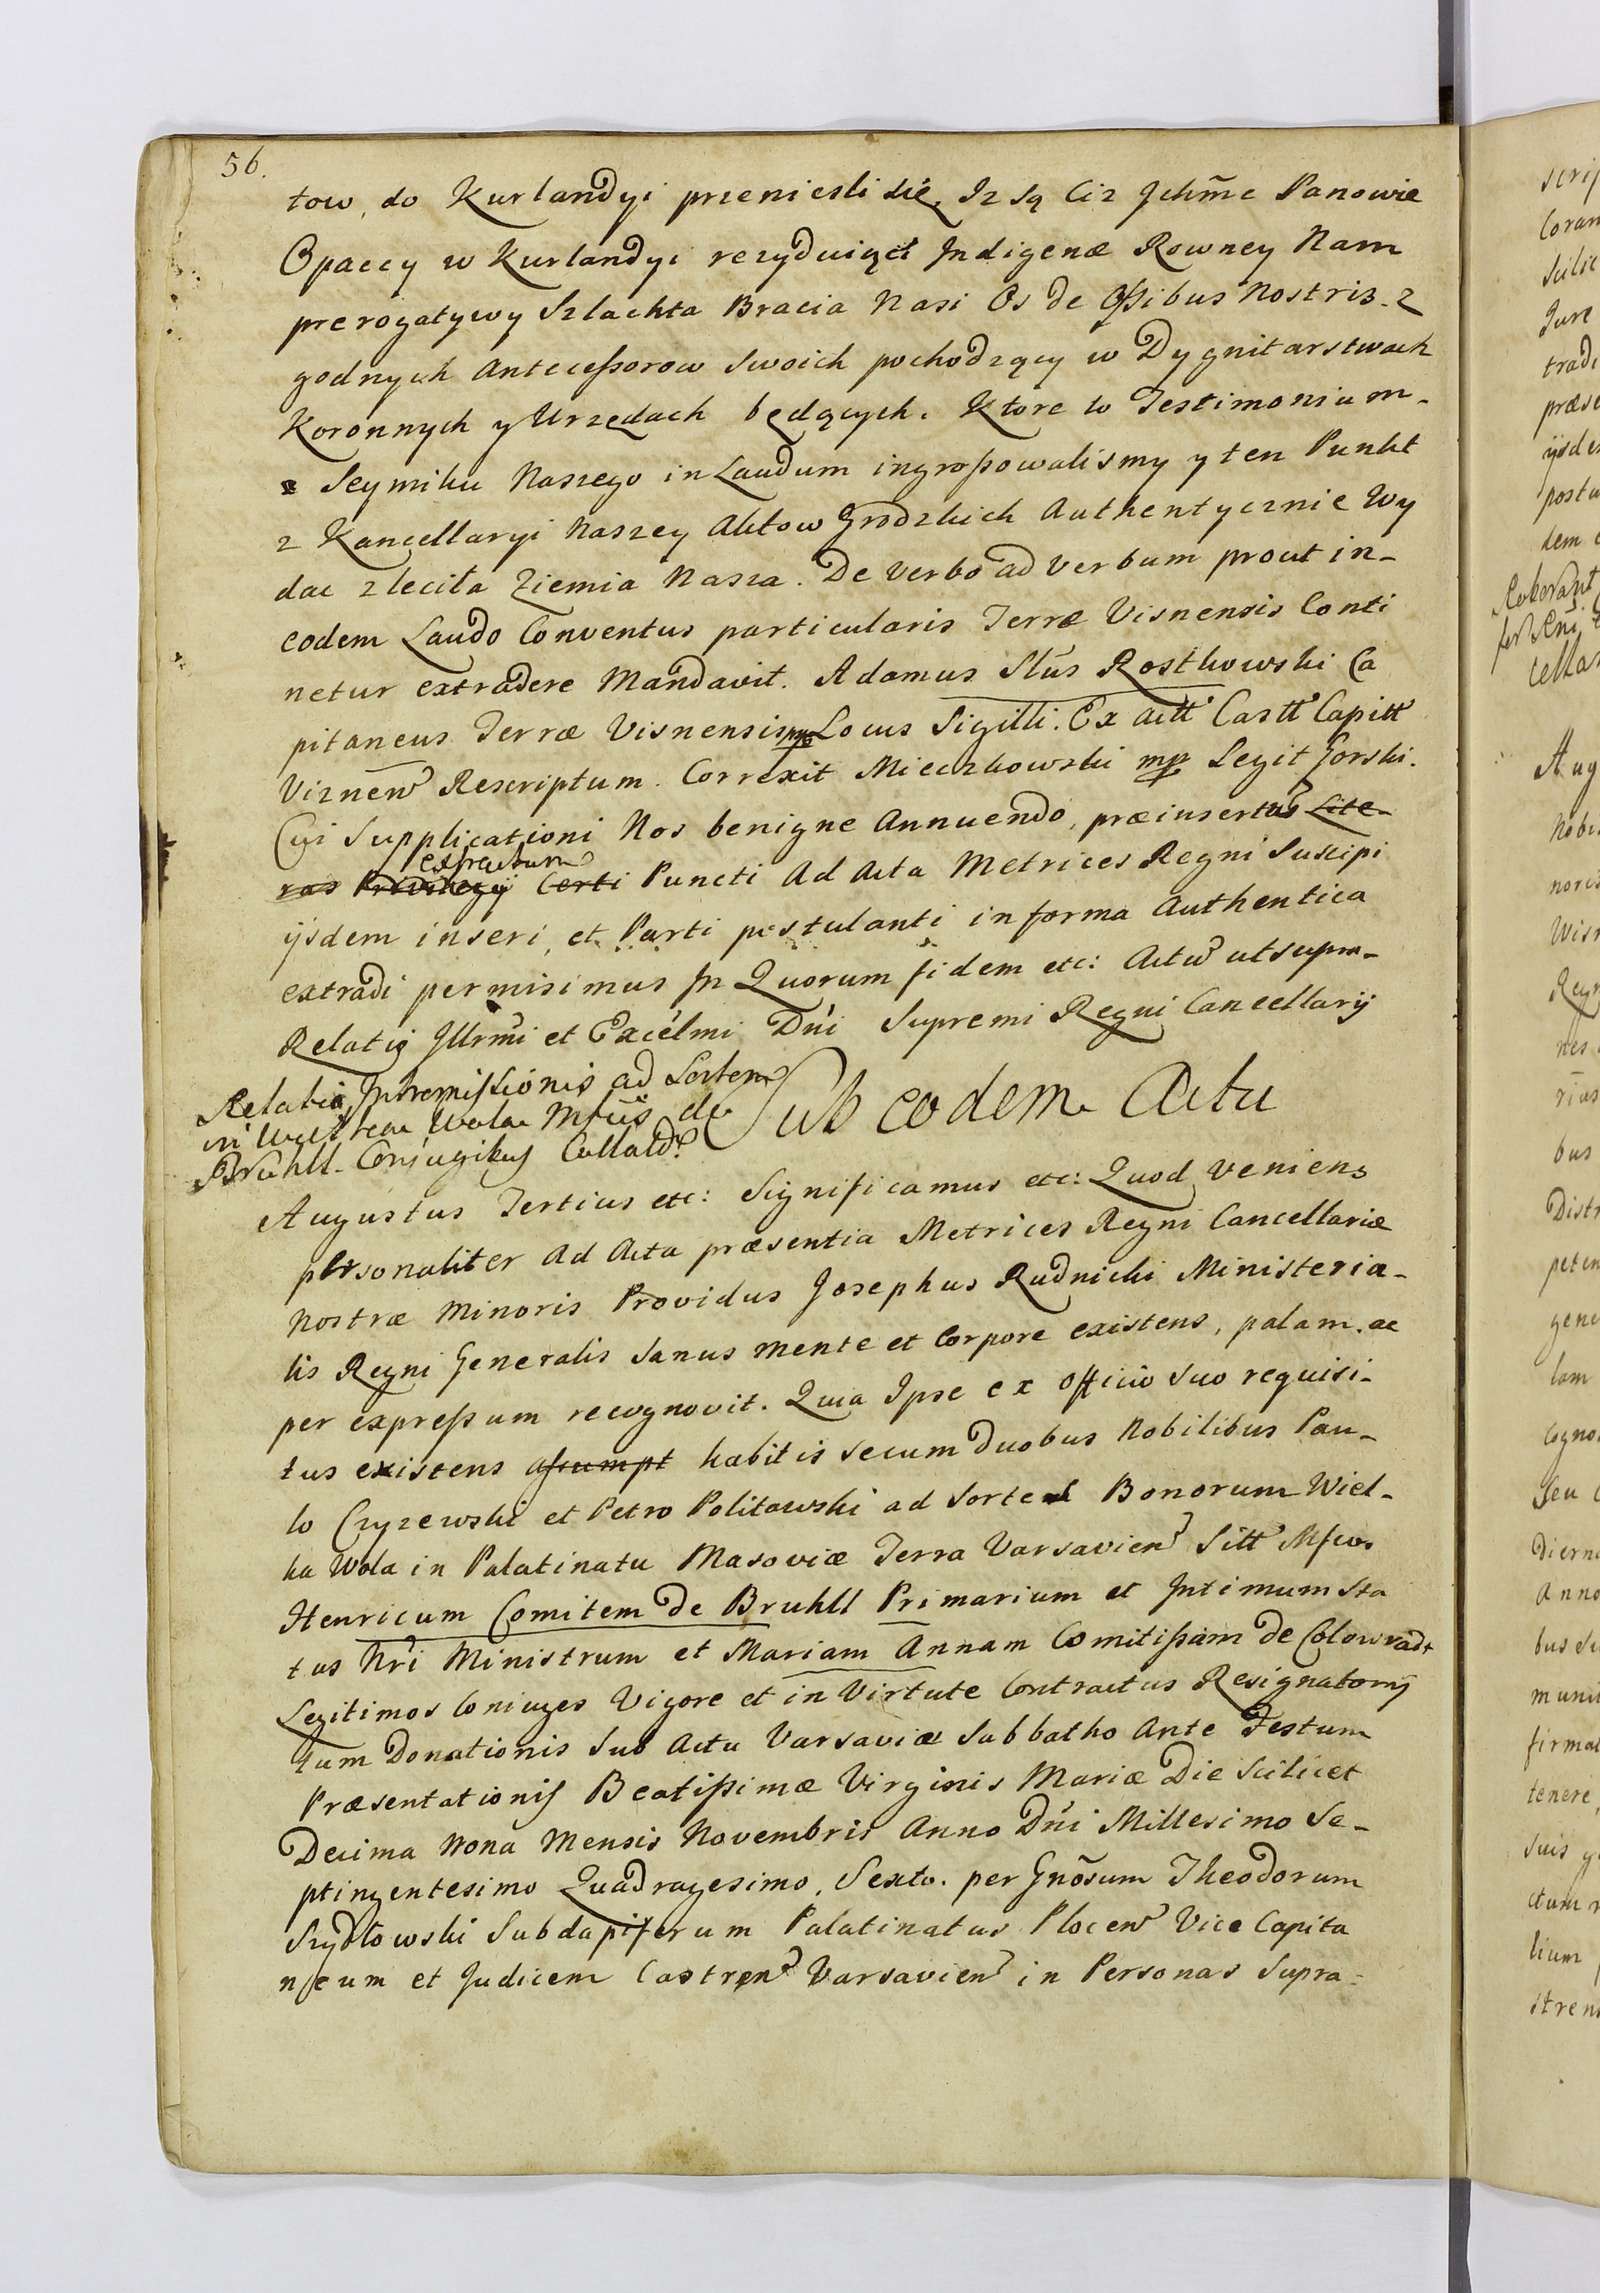 56.
tow, do Kurlandyi przeniesli się, Iz są Ciz Jchm̃c Panowie
Opaccy w Kurlandyi rezyduiący Indigenæ Rowney Nam
prerogatywy Szlachta Bracia Nasi Os de Oßibus Nostris. z
godnych Anteceßorow Swoich pochodzący w Dygnitarstwach
Koronnych y Urzędach będących. Ktore to Testimonium
Seymiku Naszego in Laudum ingroßowalismy y ten Punkt
z Kancellaryi Naszey Aktow Grodzkich Authentycznie Wy
dac zleciła Ziemia Nasza. De Verbo ad Verbum prout in-
eodem Laudo Conventus particularis Terræ Visnensis Conti
netur extradere Mandavit. Adamus Slus Rostkowski Ca
pitaneus Terræ Visnensis mp Locus Sigilli. Ex actt Castt Capitt
Viznen Rescriptum. Correxit Mieczkowski mp Legit Gorski.
Cui Supplicationi Nos benigne Annuendo, præinsertus Lite-
ras Privilegij extractum Certi Puncti Ad Acta Metrices Regni Suscipi
ijsdem inseri, et Parti postulanti in forma Authentica
extradi permisimus In Quorum fidem etc: Actu ut supra-
Relatio Illrmi et Excelmi Dni Supremi Regni Cancellarij
Relatio Intromissionis ad Sortem
in Wielka Wola Mfcis de
Brühll Conjugibus Collatd
Sub eodem Actu
Augustus Tertius etc: Significamus etc: Quod Veniens
personaliter Ad Acta præsentia Metrices Regni Cancellariæ
Nostræ Minoris Providus Josephus Rudnicki Ministeria-
lis Regni Generalis Sanus mente et Corpore existens, palam. ac
per expreßum recognovit. Quia Ipse ex officio Suo requisi-
tus existens assumpt habitis Secum duobus Nobilibus Pau-
lo Czyzewski et Petro Politowski ad Sortem Bonorum Wiel-
ka Wola in Palatinatu Masoviæ Terra Varsavien Sitt Mfcos
Henricum Comitem de Bruhll Primarium et Intimum Sta
tus Nri Ministrum et Mariam Annam Comitißam de Colowradt
Legitimos Coniuges Vigore et in Virtute Contractus Resignatorij
tum Donationis Sub Actu Varsaviæ Sabbatho Ante Festum
Præsentationis Beatißimæ Virginis Mariæ Die Scilicet
Decima Nona Mensis Novembris Anno Dni Millesimo Se-
ptingentesimo Quadragesimo, Sexto. per Gnosum Theodorum
Szydłowski Subdapiferum Palatinatus Plocen Vice Capita
neum et Judicem Castren Varsavien in Personas Supra-